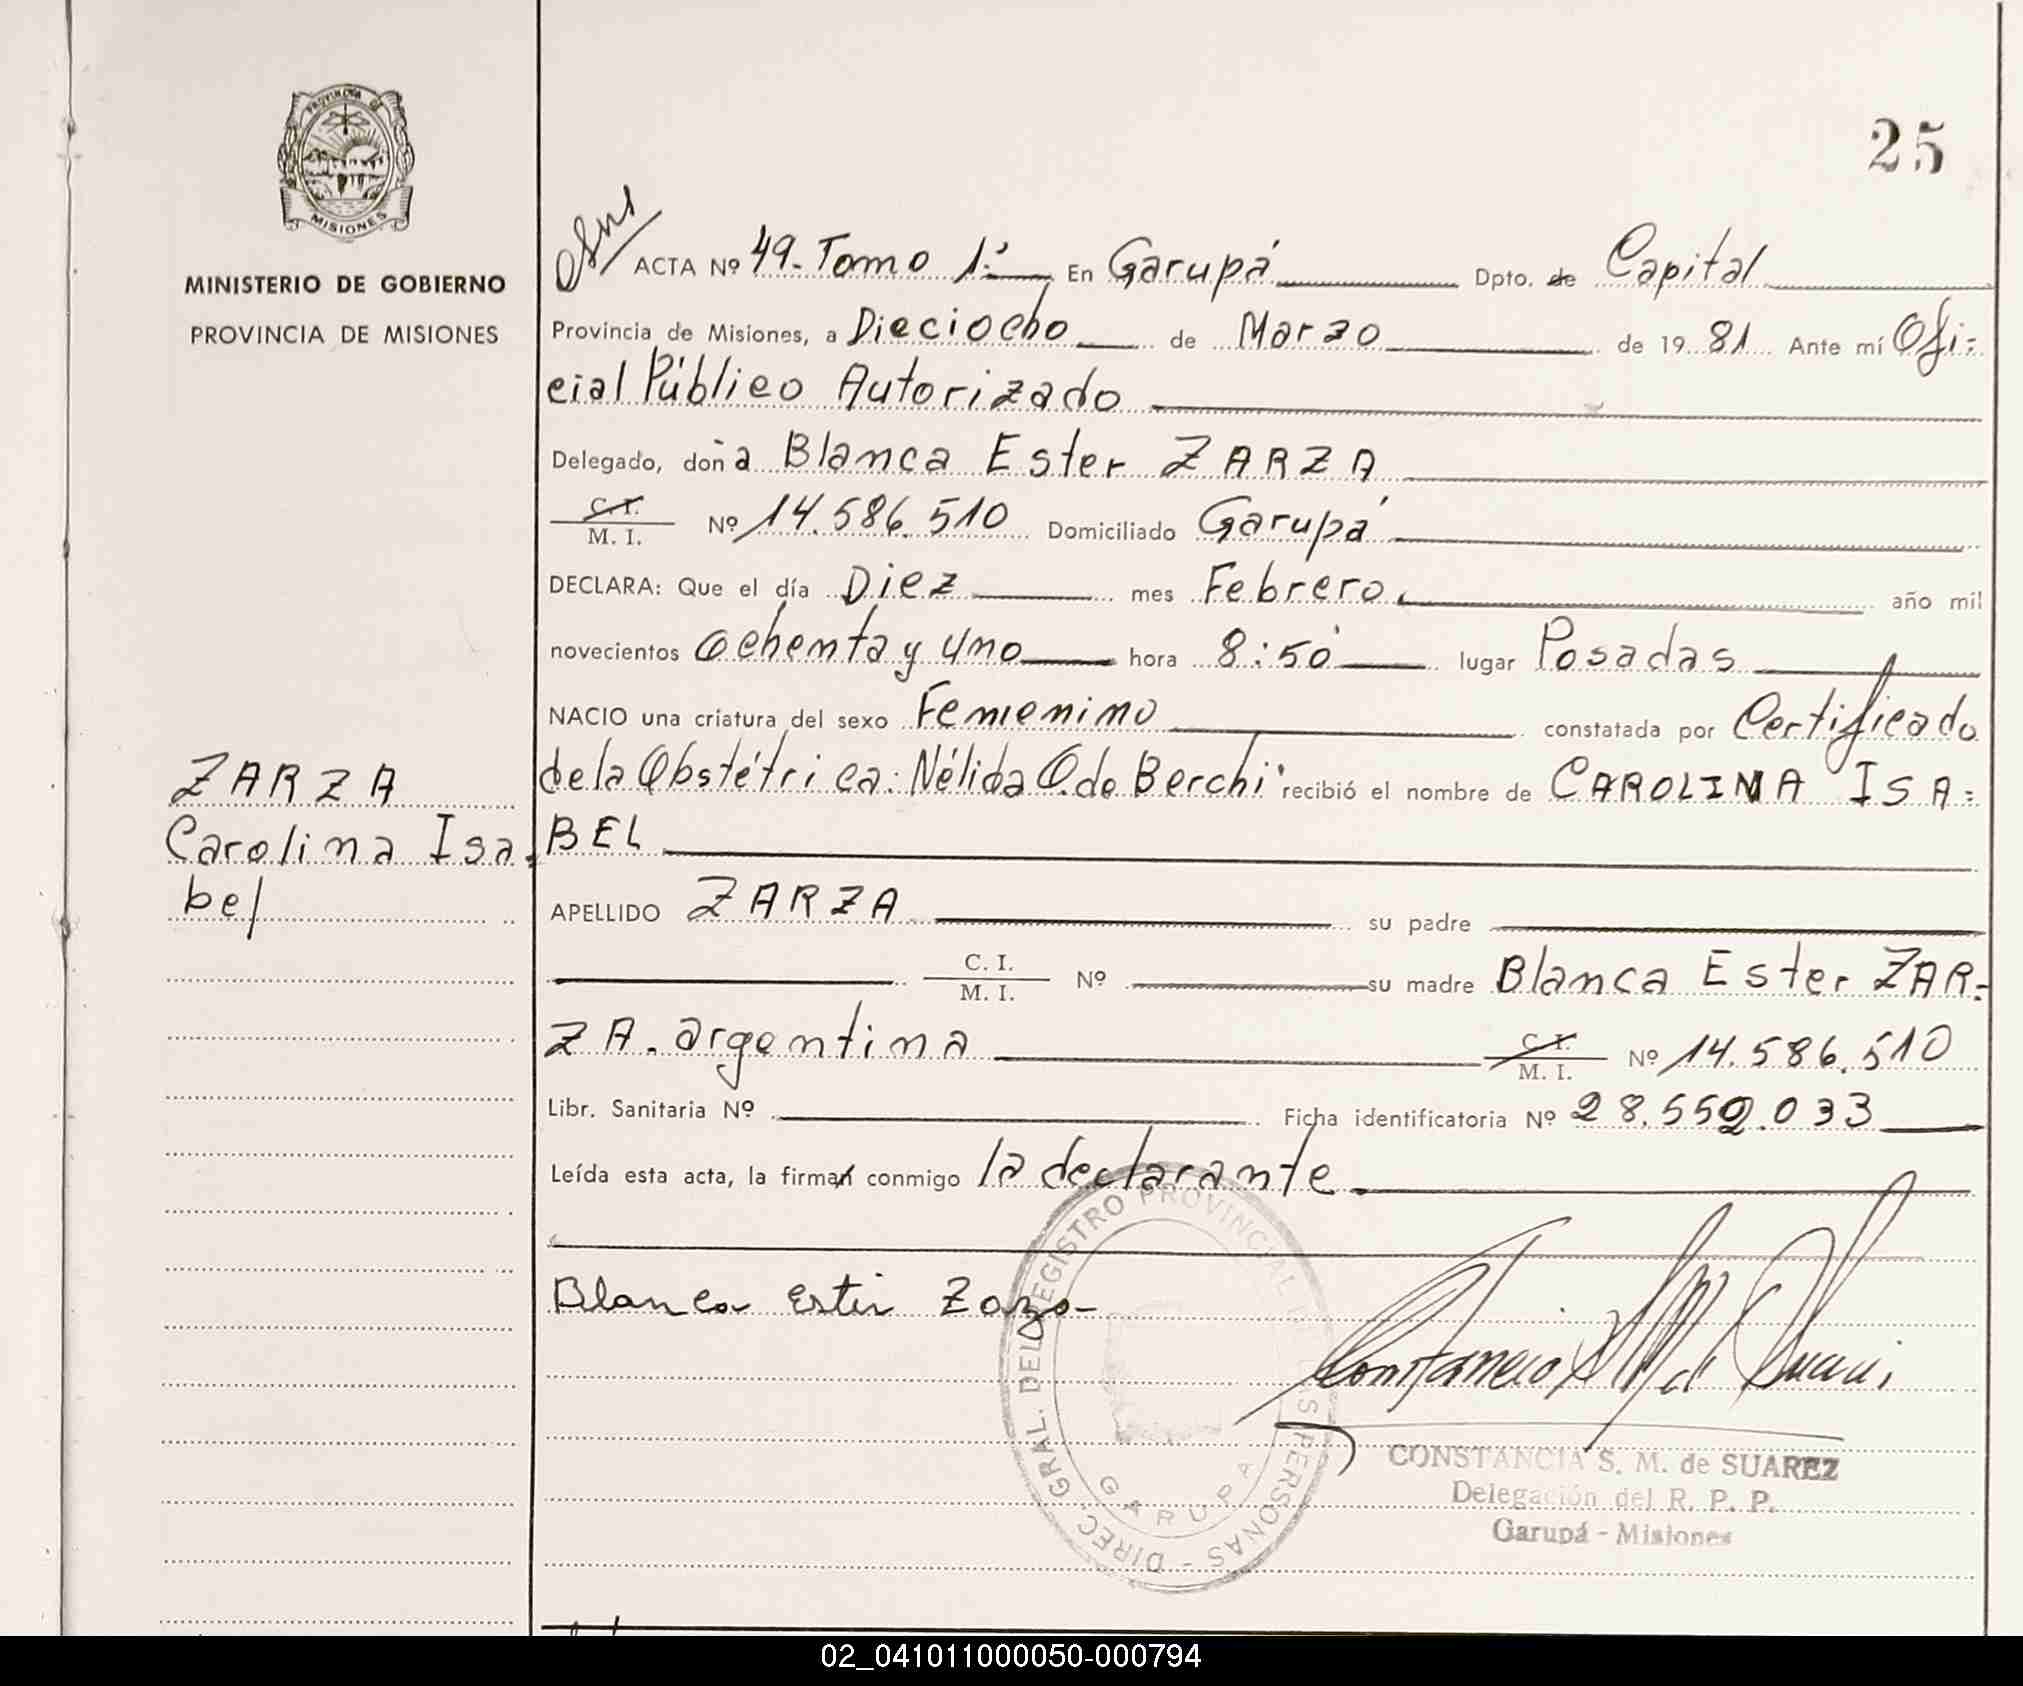 PROVINCIA DE
MISIONES
MINISTERIO DE GOBIERNO
PROVINCIA DE MISIONES
25
ACTA Nº 49.. Tomo 1º En Garupá Dpto. de Capital
Provincia de Misiones, a Dieciocho de Marzo de 1981 Ante mí Ofi-
cial Público Autorizado
Delegado, doña Blanca Ester ZARZA
C. I.
M. I. Nº 14.586.510 Domiciliado Garupá
DECLARA: Que el día Diez mes Febrero. año mil
novecientos Ochenta y uno hora 8:50 lugar Posadas
NACIO una criatura del sexo Femenino constatada por Certificado
de la Obstétrica: Nélida O. de Berchi recibió el nombre de CAROLINA ISA=
BEL
ZARZA
Carolina Isa-
bel
APELLIDO ZARZA su padre
C. I.
M. I. Nº su madre Blanca Ester ZAR=
ZA. argentina C. I.
M. I. Nº 14.586.510
Libr. Sanitaria Nº Ficha identificatoria Nº 28.552.033
Leída esta acta, la firman conmigo la declarante.
Blanca Ester Zarza
DIREC. GRAL. DEL REGISTRO PROVINCIAL DE LAS PERSONAS -
GARUPA
CONSTANCIA S. M. de SUAREZ
Delegación del R. P. P.
Garupá - Misiones
02_041011000050-000794